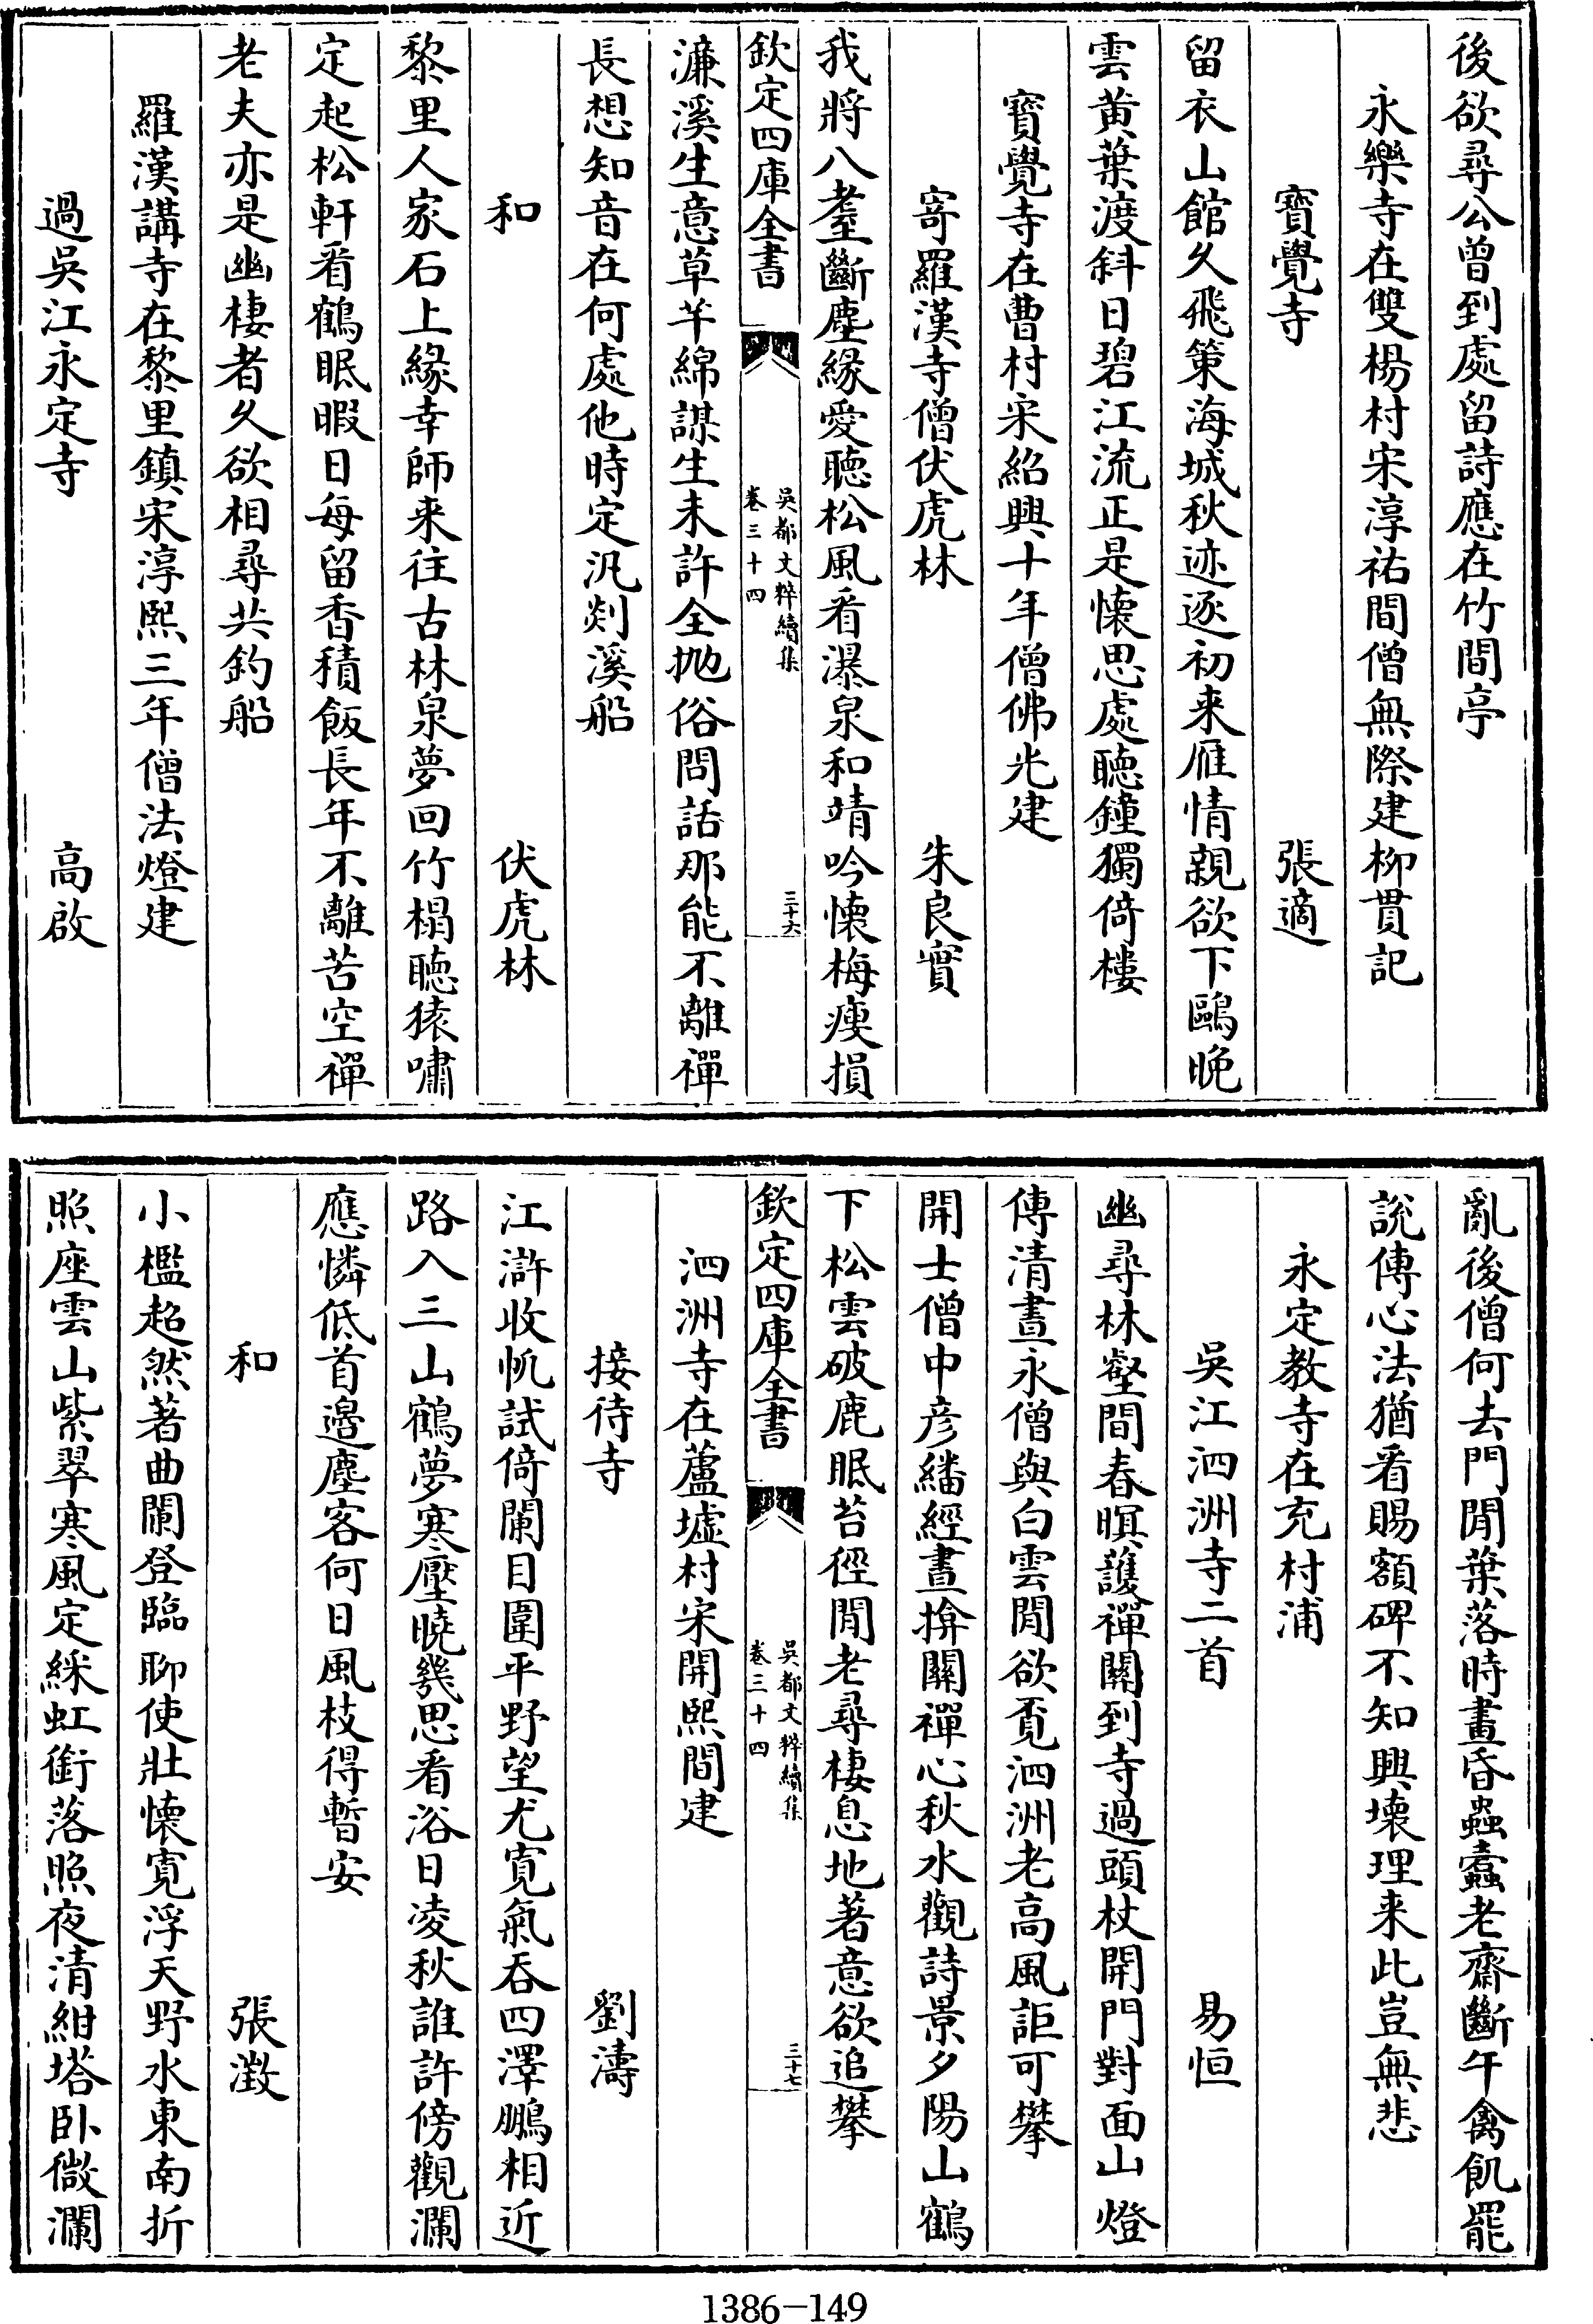 後欲尋公曾到處留詩應在竹間亭
永樂寺在雙楊村宋淳祐間僧無際建柳貫記
寶覺寺 張適
留衣山館久飛策海城秋迹逐初来雁情親欲下鷗晚
雲黃葉渡斜日碧江流正是懷思處聴鐘獨倚樓
寶覺寺在曹村宋紹興十年僧佛光建
寄羅漢寺僧伏虎林 朱良實
我將八耋斷塵緣愛聴松風看瀑泉和靖吟懷梅瘦損
欽定四庫全書 吳都文粹續集 卷三十四 三十六
濂溪生意草芊綿謀生未許全抛俗問話那能不離禪
長想知音在何處他時定汎剡溪船
和 伏虎林
黎里人家石上緣幸師来往古林泉夢回竹榻聴猿嘯
定起松軒看鶴眠暇日每留香積飯長年不離苦空禪
老夫亦是幽棲者久欲相尋共釣船
羅漢講寺在黎里鎮宋淳熙三年僧法燈建
過吳江永定寺 高啟
亂後僧何去門閒葉落時畫昏蟲蠧老齋斷午禽飢罷
說傳心法猶看賜額碑不知興壊理来此豈無悲
永定教寺在充村浦
吳江泗洲寺二首 易恒
幽尋林壑間春暝護禪關到寺過頭杖開門對面山燈
傳清晝永僧與白雲閒欲覔泗洲老高風詎可攀
開士僧中彦繙經晝掩關禪心秋水觀詩景夕陽山鶴
下松雲破鹿眠苔徑閒老尋棲息地著意欲追攀
欽定四庫全書 吳都文粹續集 卷三十四 三十七
泗洲寺在蘆墟村宋開熙間建
接待寺 劉濤
江滸收帆試倚闌目圍平野望尤寛氣吞四澤鵬相近
路入三山鶴夢寒壓曉幾思看浴日凌秋誰許傍觀瀾
應憐低首邉塵客何日風枝得暫安
和 張澂
小檻超然著曲闌登臨聊使壯懷寛浮天野水東南折
照座雲山紫翠寒風定綵虹銜落照夜清紺塔卧微瀾
1386－149